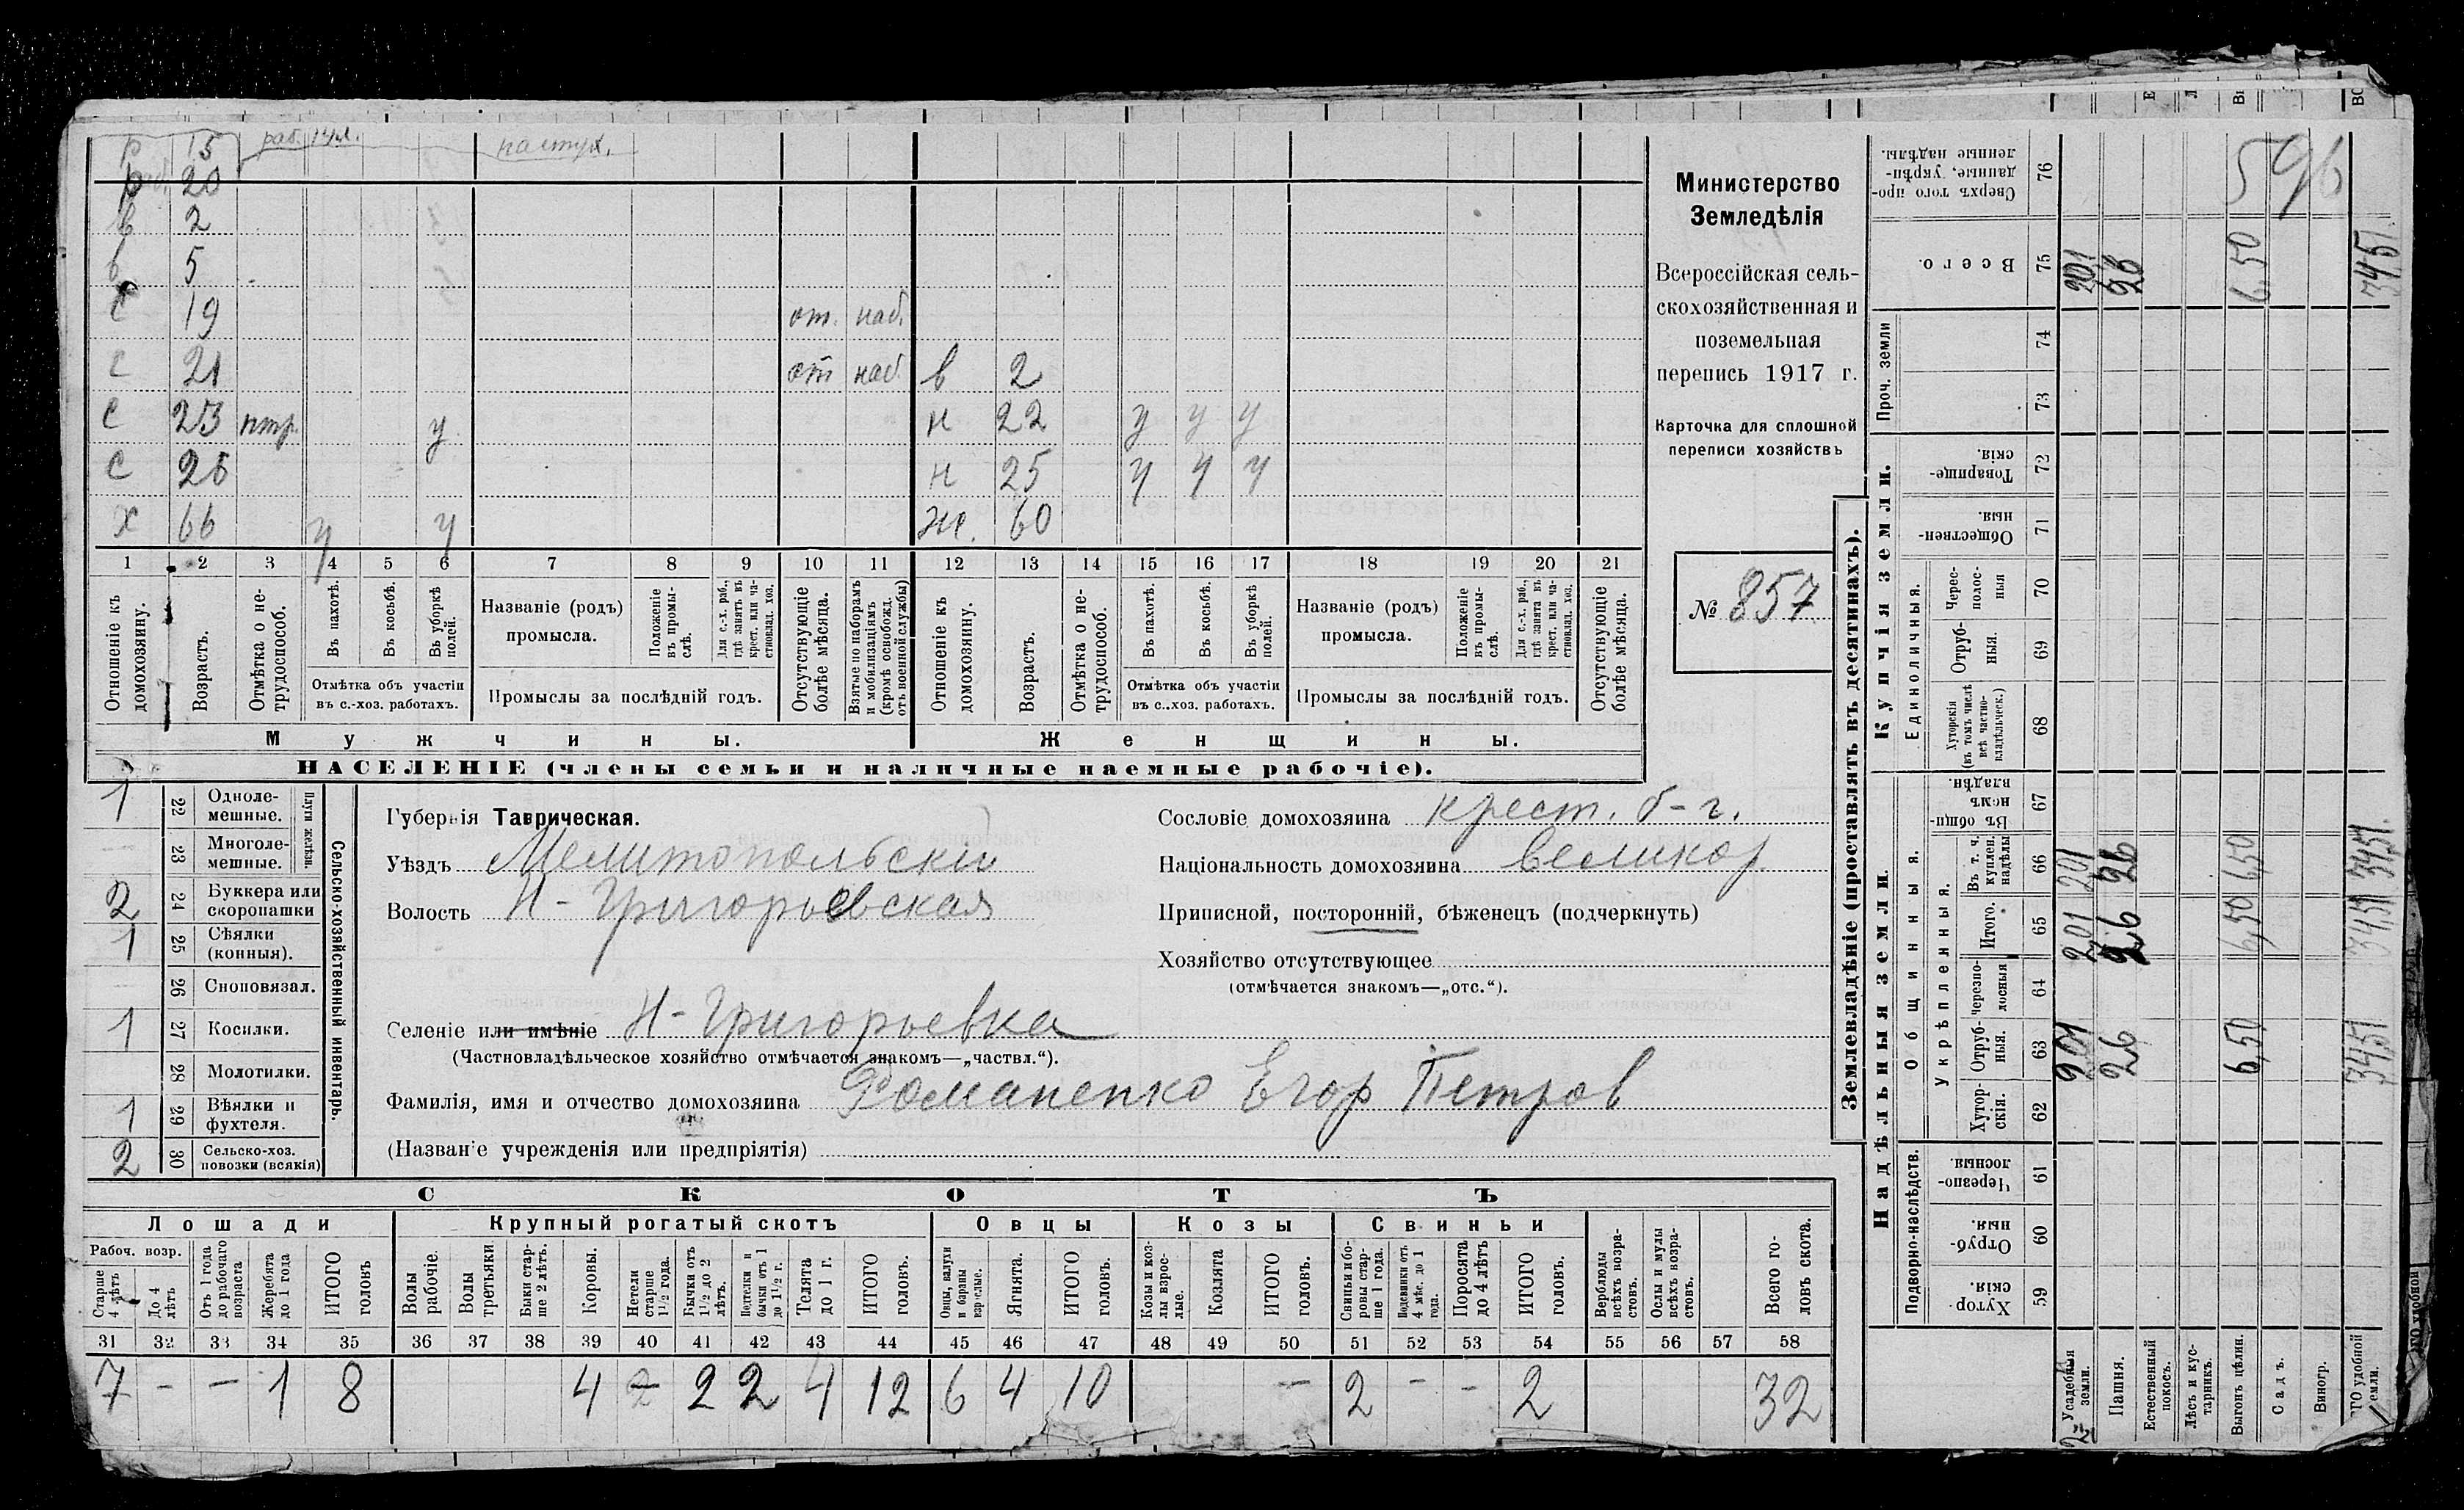 р 15 раб. 1 ул. пастух.
р 20
в 2
в 5
с 19 от. наб.
с 21 от наб. в 2
с 23 нтр. у н 22 у у у
с 26 н 25 у у у
х 66 у у ж. 60
1 2 3 4 5 6 7 8 9 10 11 12 13 14 15 16 17 18 19 20 21
Отношеніе къ домохозяину.
Возрастъ.
Отмѣтка о не-трудоспособ.
Въ пахотѣ.
Въ косьбѣ.
Въ уборкѣ полей.
Отмѣтка объ участіи
въ с.-хоз. работахъ.
Названіе (родъ)
промысла.
Положеніе въ промы-слѣ.
Для с.-х. раб., гдѣ занятъ въ крест. или ча-стновлад. хоз.
Промыслы за послѣдній годъ.
Отсутствующіе болѣе мѣсяца.
Взятые по наборамъ и мобилизаціямъ (кромѣ освобожд. отъ военной службы)
Отношеніе къ домохозяину.
Возрастъ.
Отмѣтка о не-трудоспособ.
Въ пахотѣ.
Въ косьбѣ.
Въ уборкѣ полей.
Отмѣтка объ участіи
въ с.-хоз. работахъ.
Названіе (родъ)
промысла.
Положеніе въ промы-слѣ.
Для с.-х. раб., гдѣ занята въ крест. или ча-стновлад. хоз.
Промыслы за послѣдній годъ.
Отсутствующіе болѣе мѣсяца.
Мужчины. Женщины.
НАСЕЛЕНІЕ (члены семьи и наличные наемные рабочіе).
Министерство
Земледѣлія
Всероссійская сель-
скохозяйственная и
поземельная
перепись 1917 г.
Карточка для сплошной
переписи хозяйствъ
№ 857
1 22 Одноле-мешные.
23 Многоле-мешные.
Плуги желѣзн.
2 24 Буккера или скоропашки
1 25 Сѣялки (конныя).
26 Сноповязал.
1 27 Косилки.
28 Молотилки.
1 29 Вѣялки и фухтеля.
2 30 Сельско-хоз. повозки (всякія)
Сельско-хозяйственный инвентарь.
Губернія Таврическая.
Уѣздъ Мелитопольскій
Волость Н-Григорьевская
Селеніе или имѣніе Н-Григорьевка
(Частновладѣльческое хозяйство отмѣчается знакомъ—„частвл.“).
Фамилія, имя и отчество домохозяина Романенко Егор Петров
(Названіе учрежденія или предпріятія)
Сословіе домохозяина крест. б-г.
Національность домохозяина великор.
Приписной, посторонній, бѣженецъ (подчеркнуть)
Хозяйство отсутствующее
(отмѣчается знакомъ—„отс.“).
СКОТЪ
Лошади Крупный рогатый скотъ Овцы Козы Свиньи
Рабоч. возр.
Старше 4 лѣтъ
До 4 лѣтъ
Отъ 1 года до рабочаго возраста
Жеребята до 1 года
ИТОГО головъ
Волы рабочіе.
Волы третьяки
Быки стар-ше 2 лѣтъ.
Коровы.
Нетели старше 1 1/2 года.
Бычки отъ 1 1/2 до 2 лѣтъ.
Подтелки и бычки отъ 1 до 1 1/2 г.
Телята до 1 г.
ИТОГО головъ.
Овцы, валухи и бараны взрослые.
Ягнята.
ИТОГО головъ.
Козы и коз-лы взрос-лые.
Козлята
ИТОГО головъ.
Свиньи и бо-ровы стар-ше 1 года.
Подсвинки отъ 4 мѣс. до 1 года.
Поросята до 4 лѣтъ
ИТОГО головъ.
Верблюды всѣхъ возра-стовъ.
Ослы и мулы всѣхъ возра-стовъ.
Всего го-ловъ скота.
31 32 33 34 35 36 37 38 39 40 41 42 43 44 45 46 47 48 49 50 51 52 53 54 55 56 57 58
7 - - 1 8 4 2 2 2 4 12 6 4 10 - 2 - - 2 32
Землевладѣніе (проставлять въ десятинахъ).
Купчія земли.
Надѣльныя земли.
Проч. земли
Единоличныя.
Общинныя.
Укрѣпленныя.
Подворно-наслѣдств.
Сверхъ того про-данные, укрѣп-ленные надѣлы. 76
Всего. 75
74
73
Товарище-скія. 72
Обществен-ныя. 71
Черес-полос-ныя 70
Отруб-ныя. 69
Хуторскія (въ томъ числѣ всѣ частно-владѣльческ.) 68
Въ общи-номъ владѣн. 67
Въ т. ч. куплен. надѣлы 66
Итого. 65
Черезпо-лосныя 64
Отруб-ныя. 63
Хутор-скія. 62
Черезпо-лосныя. 61
Отруб-ныя. 60
Хутор-скія. 59
Усадебныя земли.
Пашня.
Естественный покосъ.
Лѣсъ и кус-тарникъ.
Выгонъ цѣлин.
Садъ.
Виногр.
596
201 26 6,50 34,51
201 26 6,50 34,51
201 26 6,50 34,51
201 26 6,50 34,51